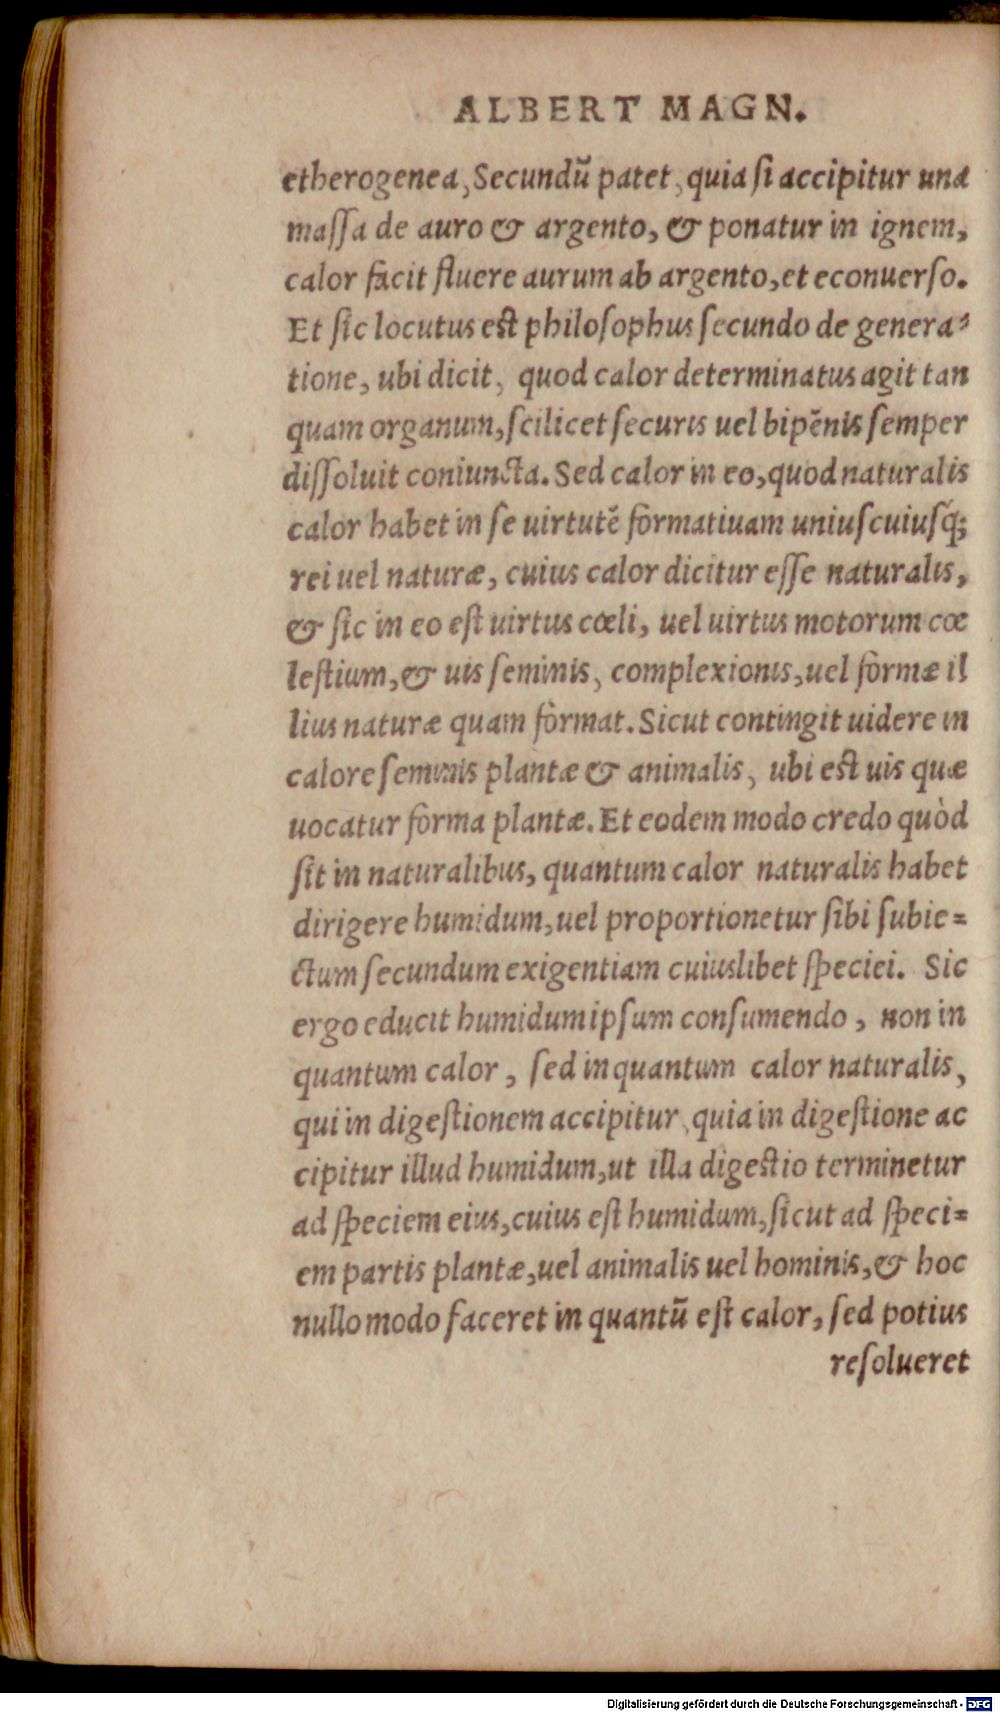 ALBERT MAGN.
etherogenea, Secundũ patet, quia ſi accipitur una
maſſa de auro & argento, & ponatur in ignem,
calor facit fluere aurum ab argento, et econuerſo.
Et ſic locutus eſt philoſophus ſecundo de genera⸗
tione, ubi dicit, quod calor determinatus agit tan
quam organum, ſcilicet ſecuris uel bipẽnis ſemper
diſſoluit coniuncta. Sed calor in eo, quod naturalis
calor habet in ſe uirtutẽ formatiuam uniuſcuiuſq́;
rei uel naturæ, cuius calor dicitur eſſe naturalis,
& ſic in eo eſt uirtus cœli, uel uirtus motorum cœ
leſtium, & uis ſeminis, complexionis, uel formæ il
lius naturæ quam format. Sicut contingit uidere in
calore ſeminis plantæ & animalis, ubi eſt uis quæ
uocatur forma plantæ. Et eodem modo credo quòd
ſit in naturalibus, quantum calor naturalis habet
dirigere humidum, uel proportionetur ſibi ſubie⸗
ctum ſecundum exigentiam cuiuslibet ſpeciei. Sic
ergo educit humidum ipſum conſumendo, non in
quantum calor, ſed inquantum calor naturalis,
qui in digeſtionem accipitur, quia in digeſtione ac
cipitur illud humidum, ut illa digeſtio terminetur
ad ſpeciem eius, cuius eſt humidum, ſicut ad ſpeci⸗
em partis plantæ, uel animalis uel hominis, & hoc
nullo modo faceret in quantũ eſt calor, ſed potius
reſolueret
Digitalisierung gefördert durch die Deutsche Forschungsgemeinschaft - DFG